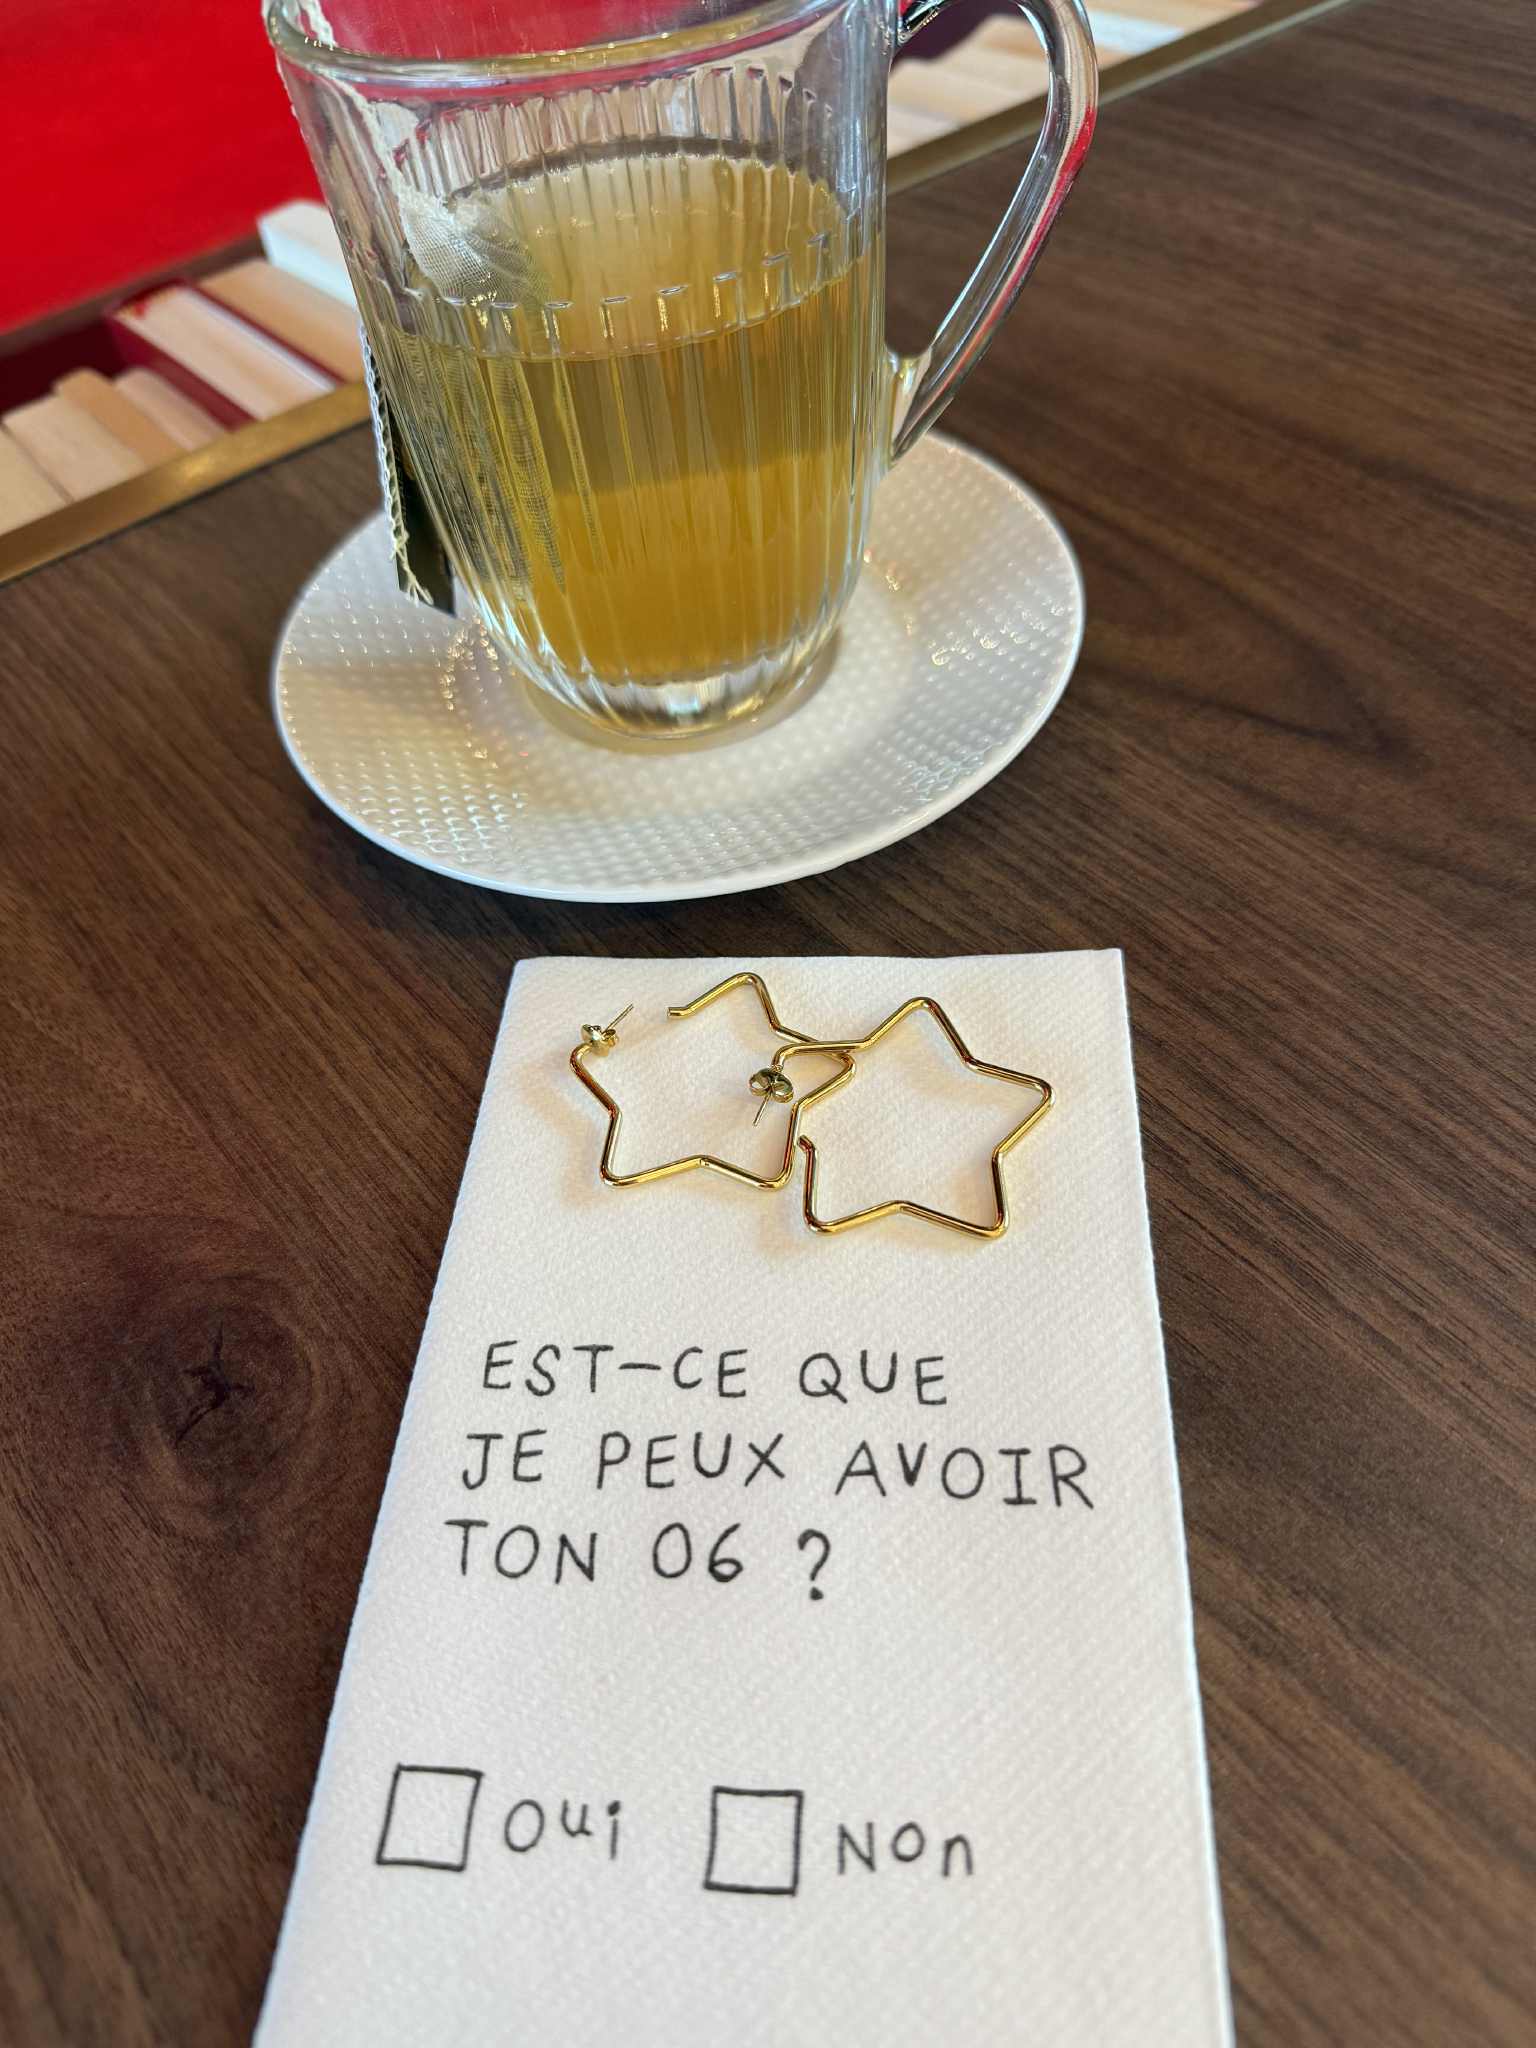 EST-CE QUE
JE PEUX AVOIR
TON 06 ?
Oui Non